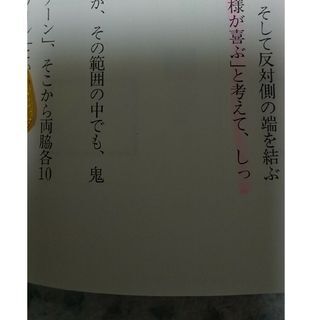 そして反対側の端を結ぶ
様が喜ぶ」と考えて、しっ
が、その範囲の中でも、鬼
ーン」、そこから両脇各10